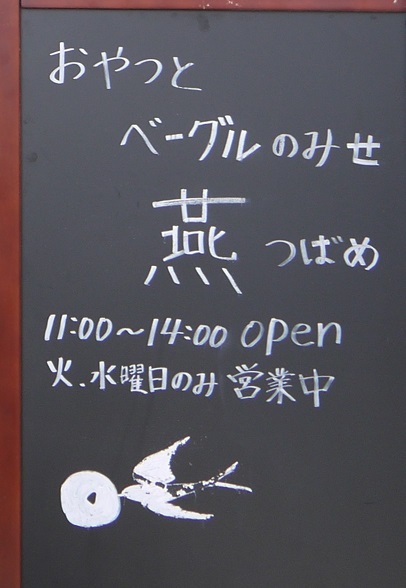 おやつと
ベーグルのみせ
燕 つばめ
11:00～14:00 open
火.水曜日のみ営業中